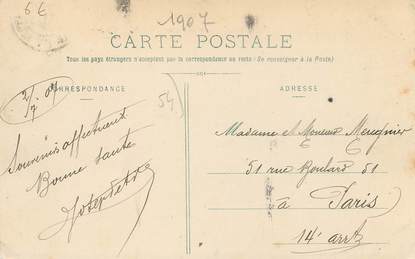 6€
1907
CARTE POSTALE
Tous les pays étrangers n'acceptent pas la correspondance au recto (Se renseigner à la Poste)
CORRESPONDANCE
ADRESSE
54
Souvenir affectueux
Bonne santé
Madame et Monsieur Meugnier
51 rue Boulard 51
à Paris
14e arrt